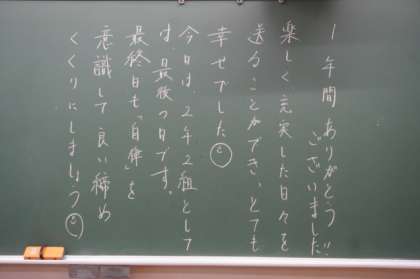 1年間ありがとう!!
ございました
楽しく、充実した日々を
送ることができ、とても
幸せでした
今日は、2年2組として
は、最後の日です。
最終日も「自律」を
意識して良い締め
くくりにしましょう